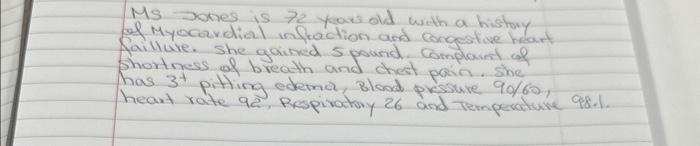 Ms Jones is 72 years old with a history
of Myocardial infraction and congestive heart
faillure. She gained 5 pound. Complaint of
Shortness of breath and chest pain. She
has 3+ pitting edema, Blood pressure 90/60,
heart rate 92, Respiratory 26 and Temperature 98.1.